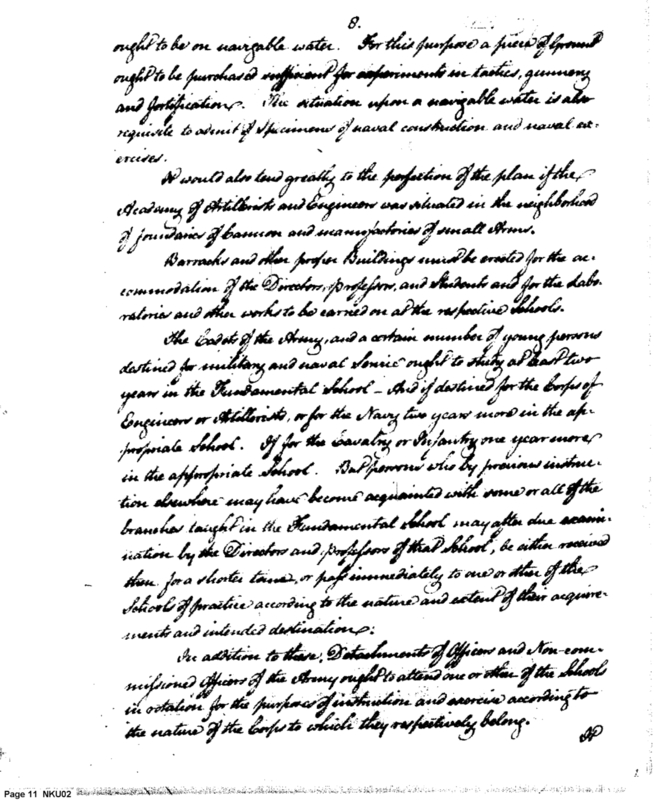 8.
ought to be on navigable water. For this purpose a piece of Ground
ought to be purchased sufficient for experiments in tactics, gunnery
and fortification. The situation upon a navigable water is also
requisite to admit of specimens of naval construction and naval ex-
ercises.
It would also tend greatly to the perfection of the plan if the
Academy of Artillerists and Engineers was situated in the neighborhood
of foundaries of Cannon and manufactories of small Arms.
Barracks and other proper Buildings must be erected for the ac-
commodation of the Directors, Professors, and Students and for the Labo-
ratories and other works to be carried on at the respective Schools.
The Cadets of the Army, and a certain number of young persons
destined for military and naval Service ought to study at least two
years in the Fundamental School - And if destined for the Corps of
Engineers or Artillerists, or for the Navy two years more in the ap-
propriate School. If for the Cavalry or Infantry one year more
in the appropriate School. But persons who by previous instruc-
tion elsewhere may have become acquainted with some or all of the
branches taught in the Fundamental School may after due exami-
nation by the Directors and professors of that School, be either received
then for a shorter time, or pass immediately to one or other of the
Schools of practice according to the nature and extent of their acquire-
ments and intended destination.
In addition to these, Detachments of Officers and Non-com-
missioned Officers of the Army ought to attend one or other of the Schools
in rotation for the purposes of instruction and exercise according to
the nature of the Corps to which they respectively belong.
It
Page 11 NKU02